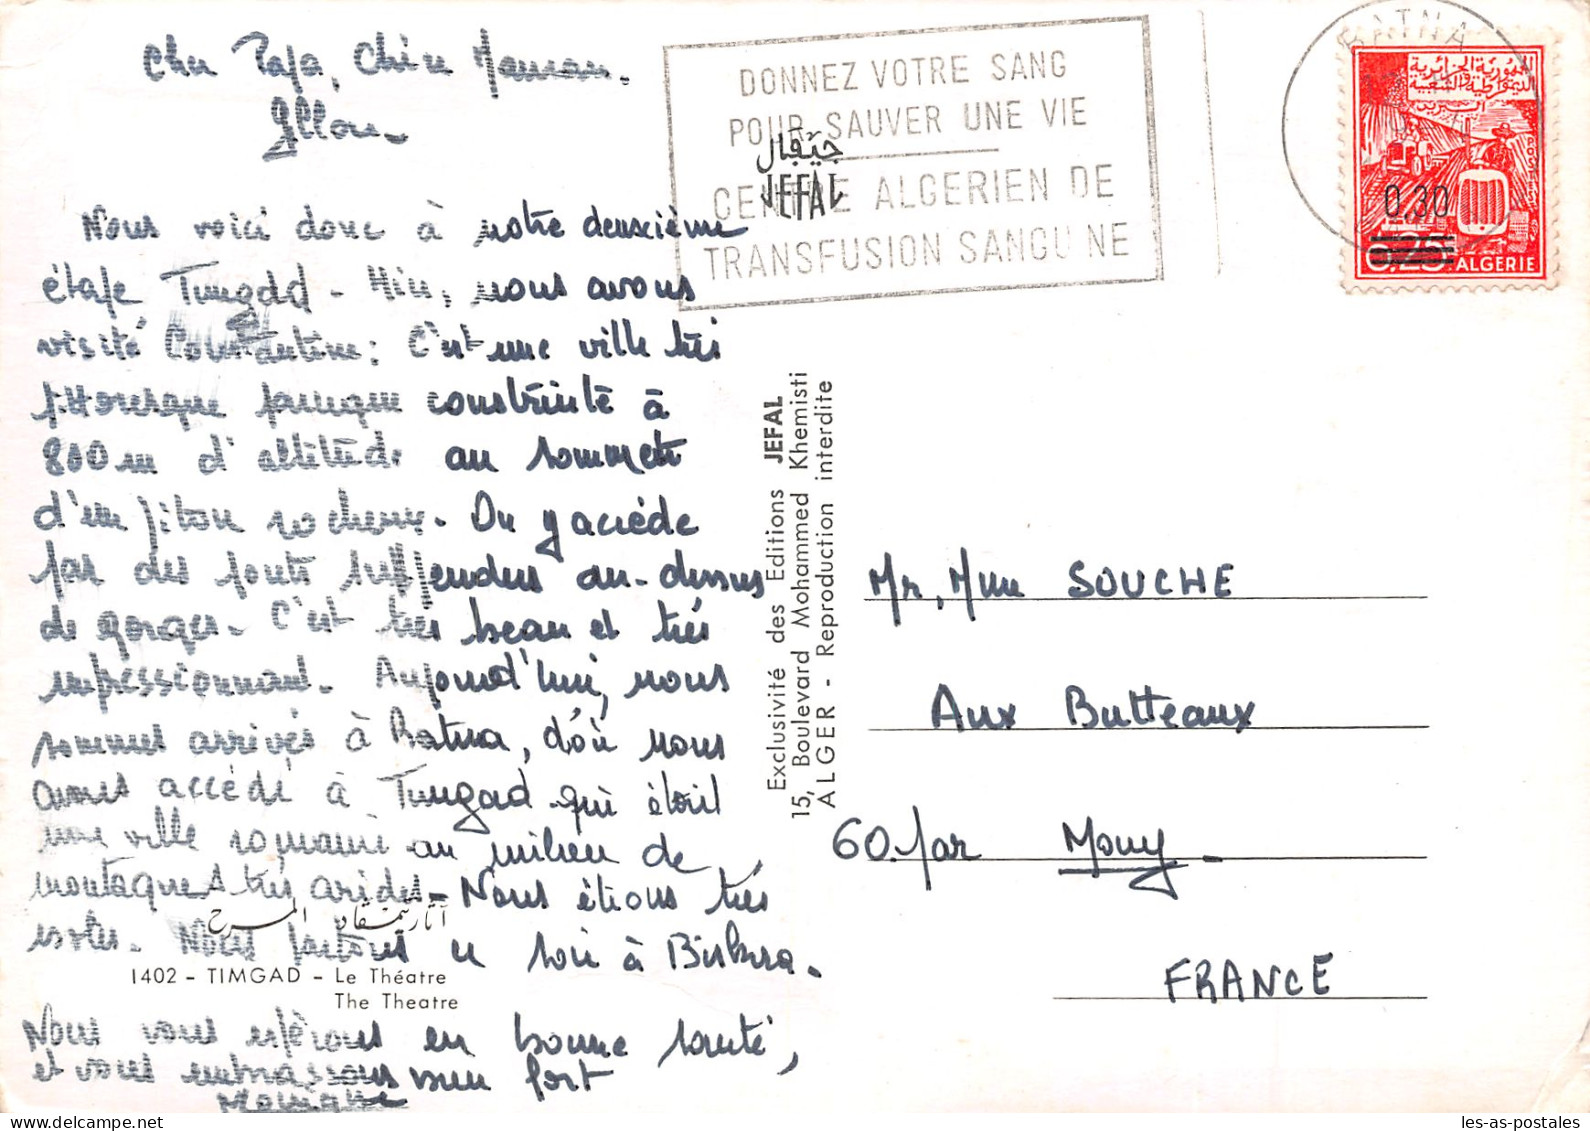 Cher Papa, Chère Maman.
Nous voici donc à notre deuxième
étape Timgad - Hier, nous avons
visité Constantine : C'est une ville très
pittoresque puisque construite à
800 m d'altitude au sommet
d'un piton rocheux. On y accède
par des ponts suspendus au-dessus
de gorges. C'est très beau et très
impressionnant. Aujourd'hui, nous
sommes arrivés à Batna, d'où nous
avons accédé à Timgad qui était
une ville romaine au milieu de
montagnes très arides - Nous étions très
isolés. Nous partons ce soir à Biskra.
Nous vous espérons en bonne santé,
et vous embrassons bien fort
آثار تمقاد المسرح
1402 - TIMGAD - Le Théatre
The Theatre
DONNEZ VOTRE SANG
POUR SAUVER UNE VIE
CENTRE ALGERIEN DE
TRANSFUSION SANGUINE
جيفال
JEFAL
Exclusivité des Editions JEFAL
15, Boulevard Mohammed Khemisti
ALGER - Reproduction interdite
BATNA
الجمهورية الجزائرية
الديمقراطية الشعبية
البريد
0,30
0,25 ALGÉRIE
Mr, Mme SOUCHE
Aux Butteaux
60. par Mouy -
FRANCE
les-as-postales - delcampe.net